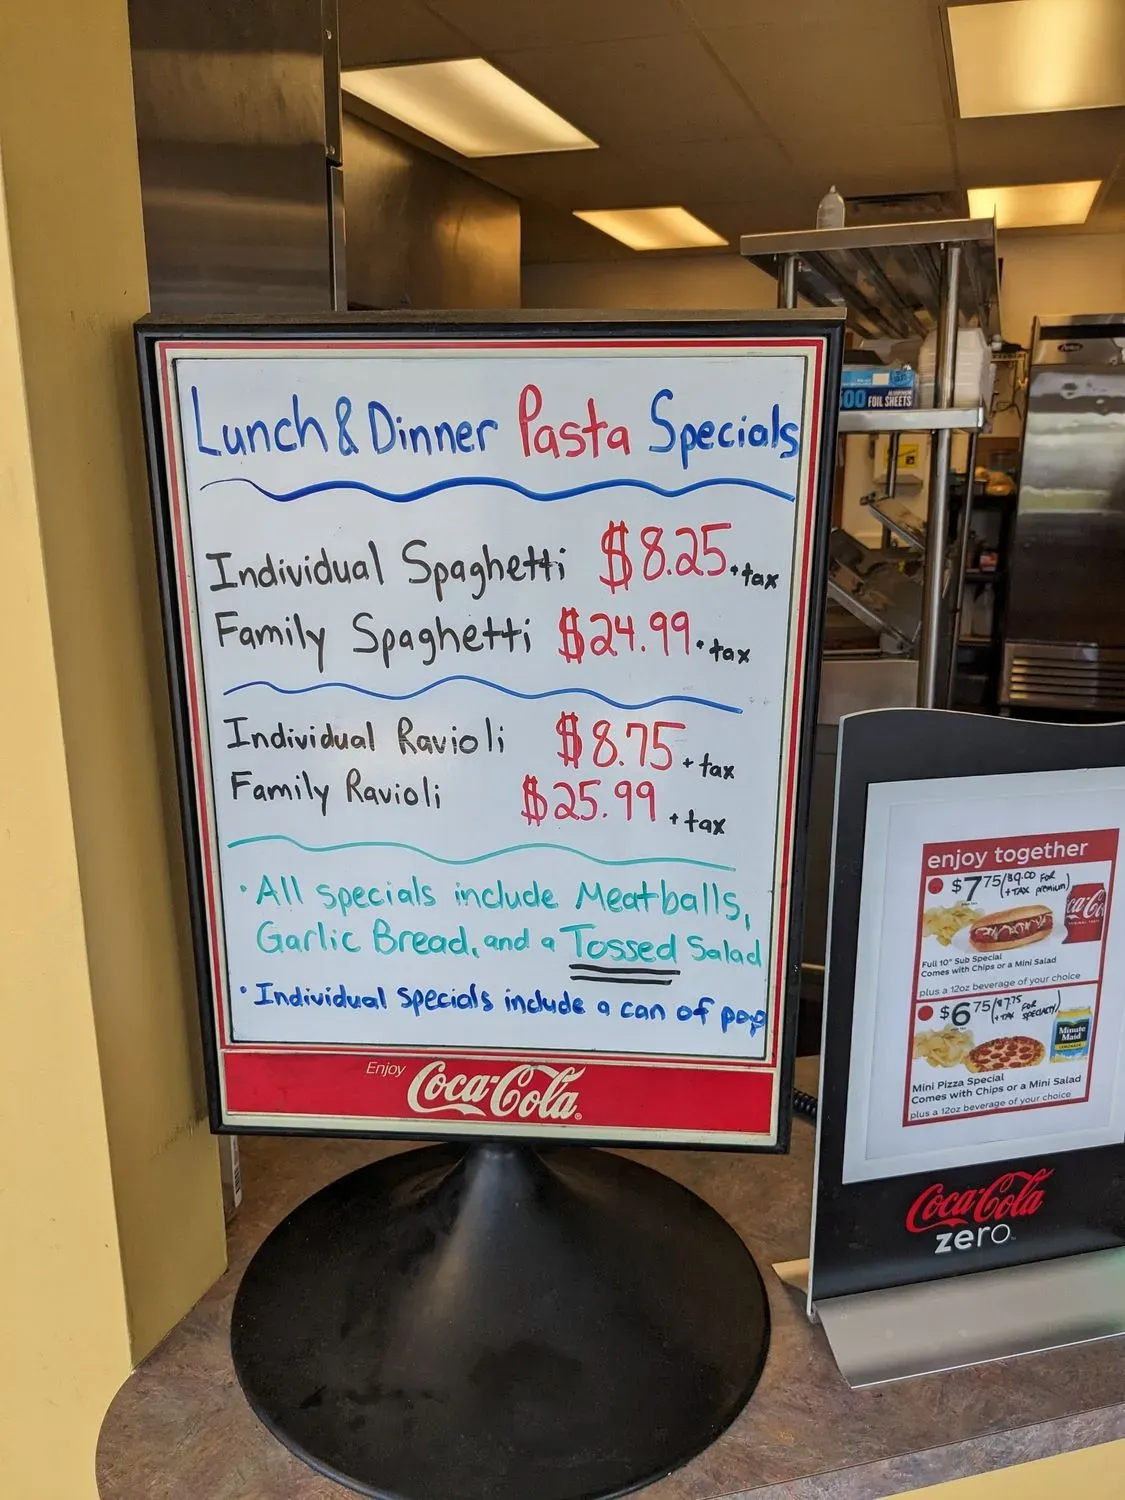 Lunch & Dinner Pasta Specials
Individual Spaghetti $8.25 + tax
Family Spaghetti $24.99 + tax
Individual Ravioli $8.75 + tax
Family Ravioli $25.99 + tax
• All specials include Meatballs,
Garlic Bread, and a Tossed Salad
• Individual specials include a can of pop
Enjoy Coca-Cola
500 FOIL SHEETS
enjoy together
$7.75/$9.00 FOR
+ TAX premium)
Full 10" Sub Special
Comes with Chips or a Mini Salad
plus a 12oz beverage of your choice
$6.75/$7.75 FOR
+ TAX SPECIALTY)
Minute
Maid
LEMONADE
Mini Pizza Special
Comes with Chips or a Mini Salad
plus a 12oz beverage of your choice
Coca-Cola
zero